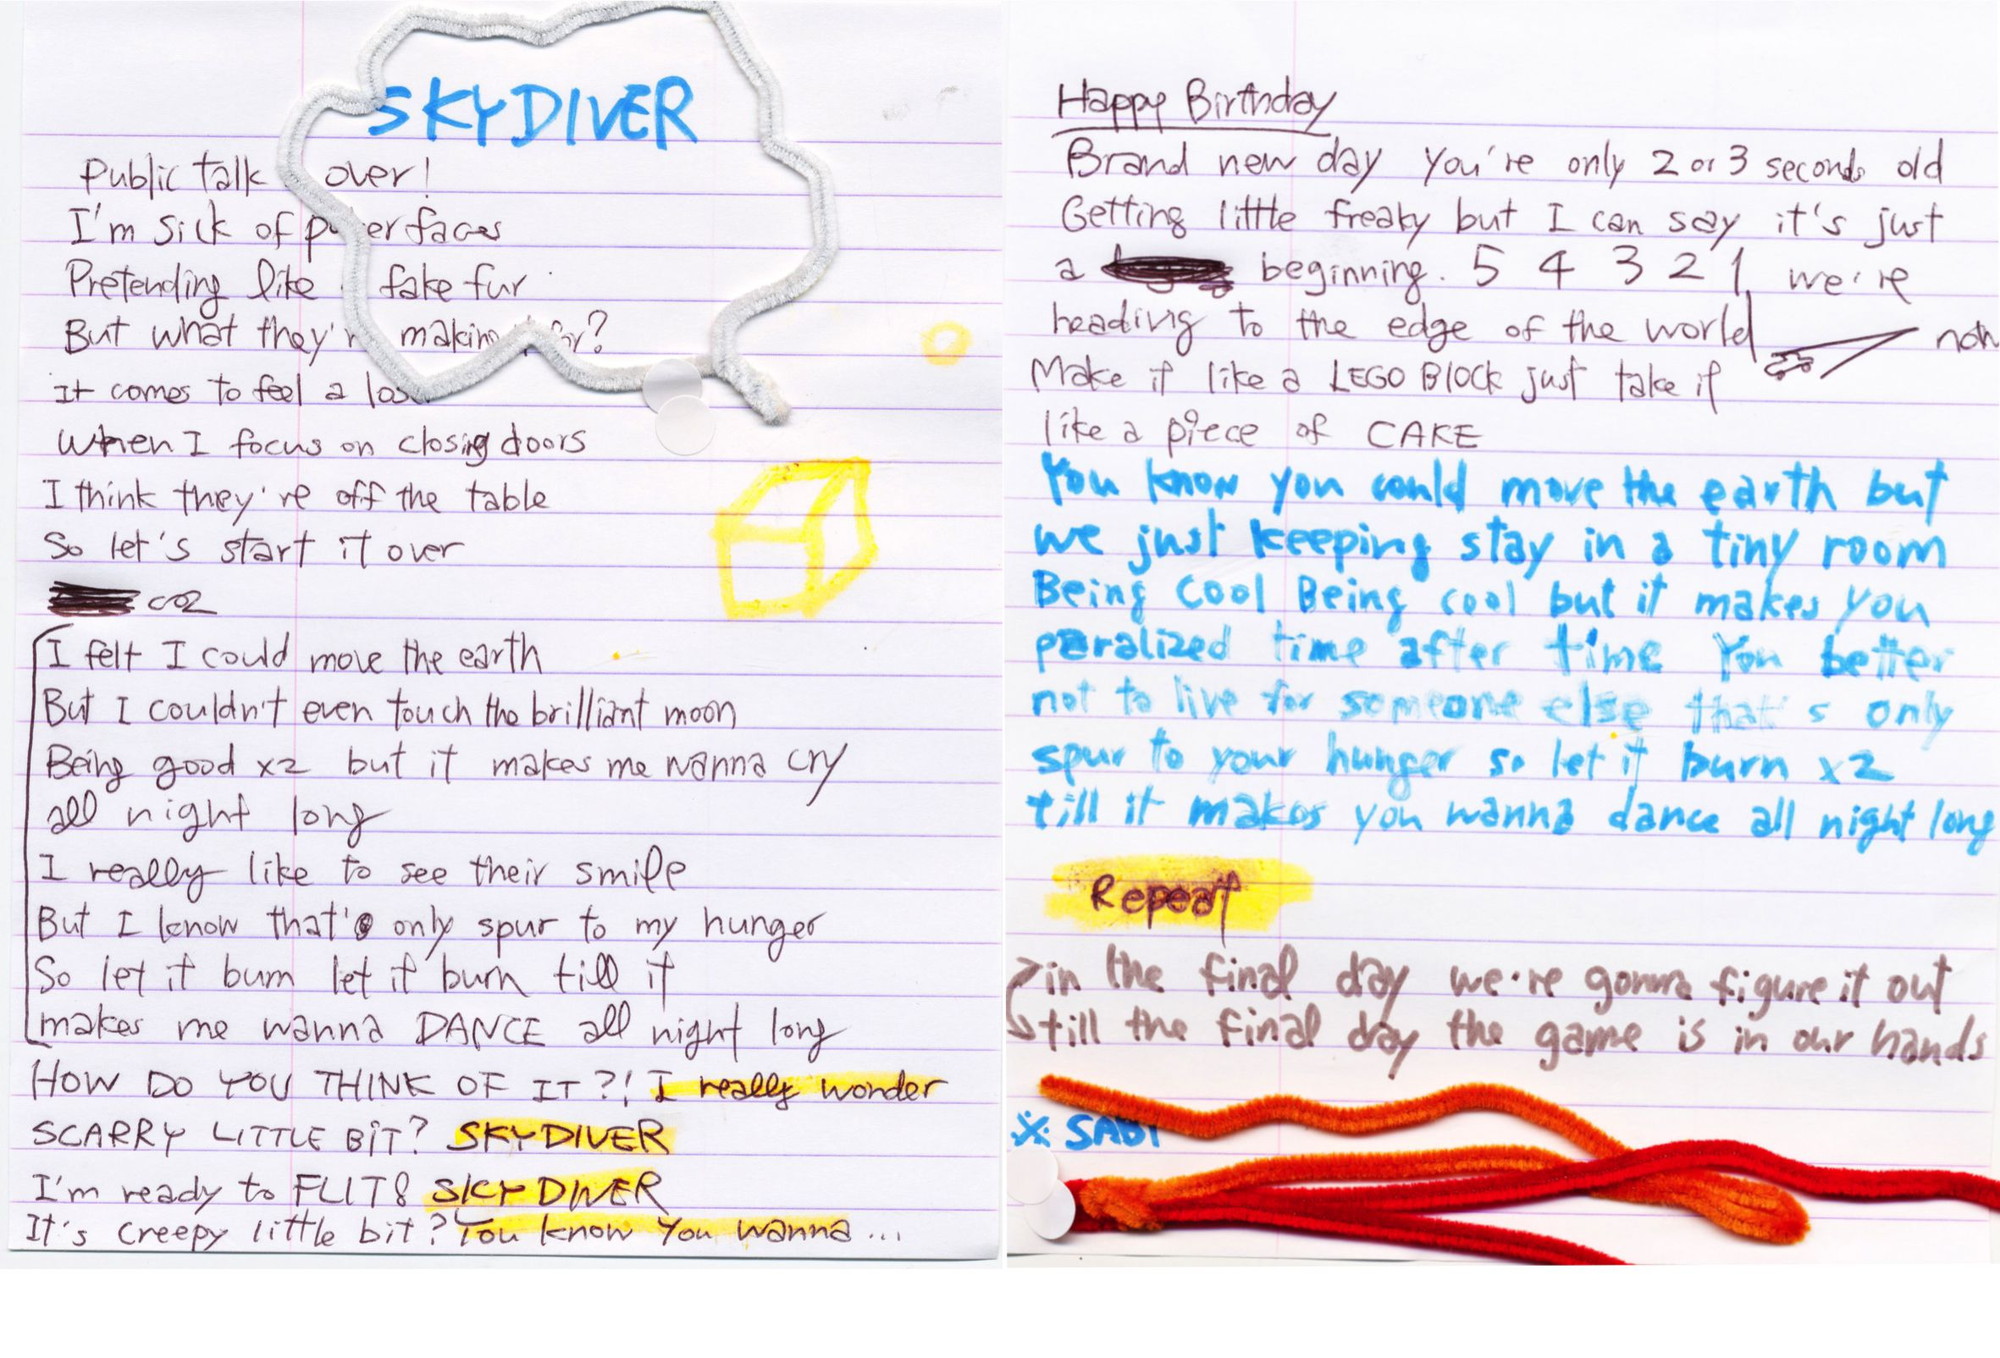 SKYDIVER
Public talk over!
I'm sick of faces
Pretending like fake fur
But what they'r making for?
It comes to feel a
When I focus on closing doors
I think they're off the table
So let's start it over
I felt I could move the earth
But I couldn't even touch the brilliant moon
Being good x2 but it makes me wanna cry
all night long
I really like to see their smile
But I know that's only spur to my hunger
So let it burn let it burn till it
makes me wanna DANCE all night long
HOW DO YOU THINK OF IT?! I really wonder
SCARRY LITTLE BIT? SKYDIVER
I'm ready to FLIT! SKYDIVER
It's creepy little bit? You know you wanna...
Happy Birthday
Brand new day you're only 2 or 3 seconds old
Getting little freaky but I can say it's just
a beginning. 5 4 3 2 1 we're
heading to the edge of the world
Make it like a LEGO BLOCK just take it
like a piece of CAKE
You know you could move the earth but
we just keeping stay in a tiny room
Being cool Being cool but it makes you
paralized time after time You better
not to live for someone else that's only
spur to your hunger so let it burn x2
till it makes you wanna dance all night long
Repeat
in the final day we're gonna figure it out
till the final day the game is in our hands
※ SABI